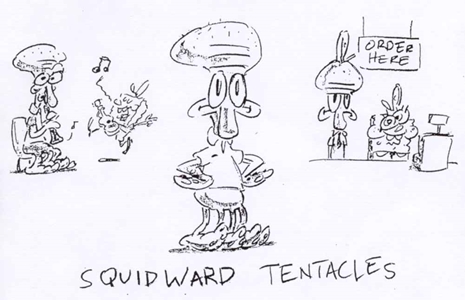 ORDER
HERE
SQUIDWARD TENTACLES